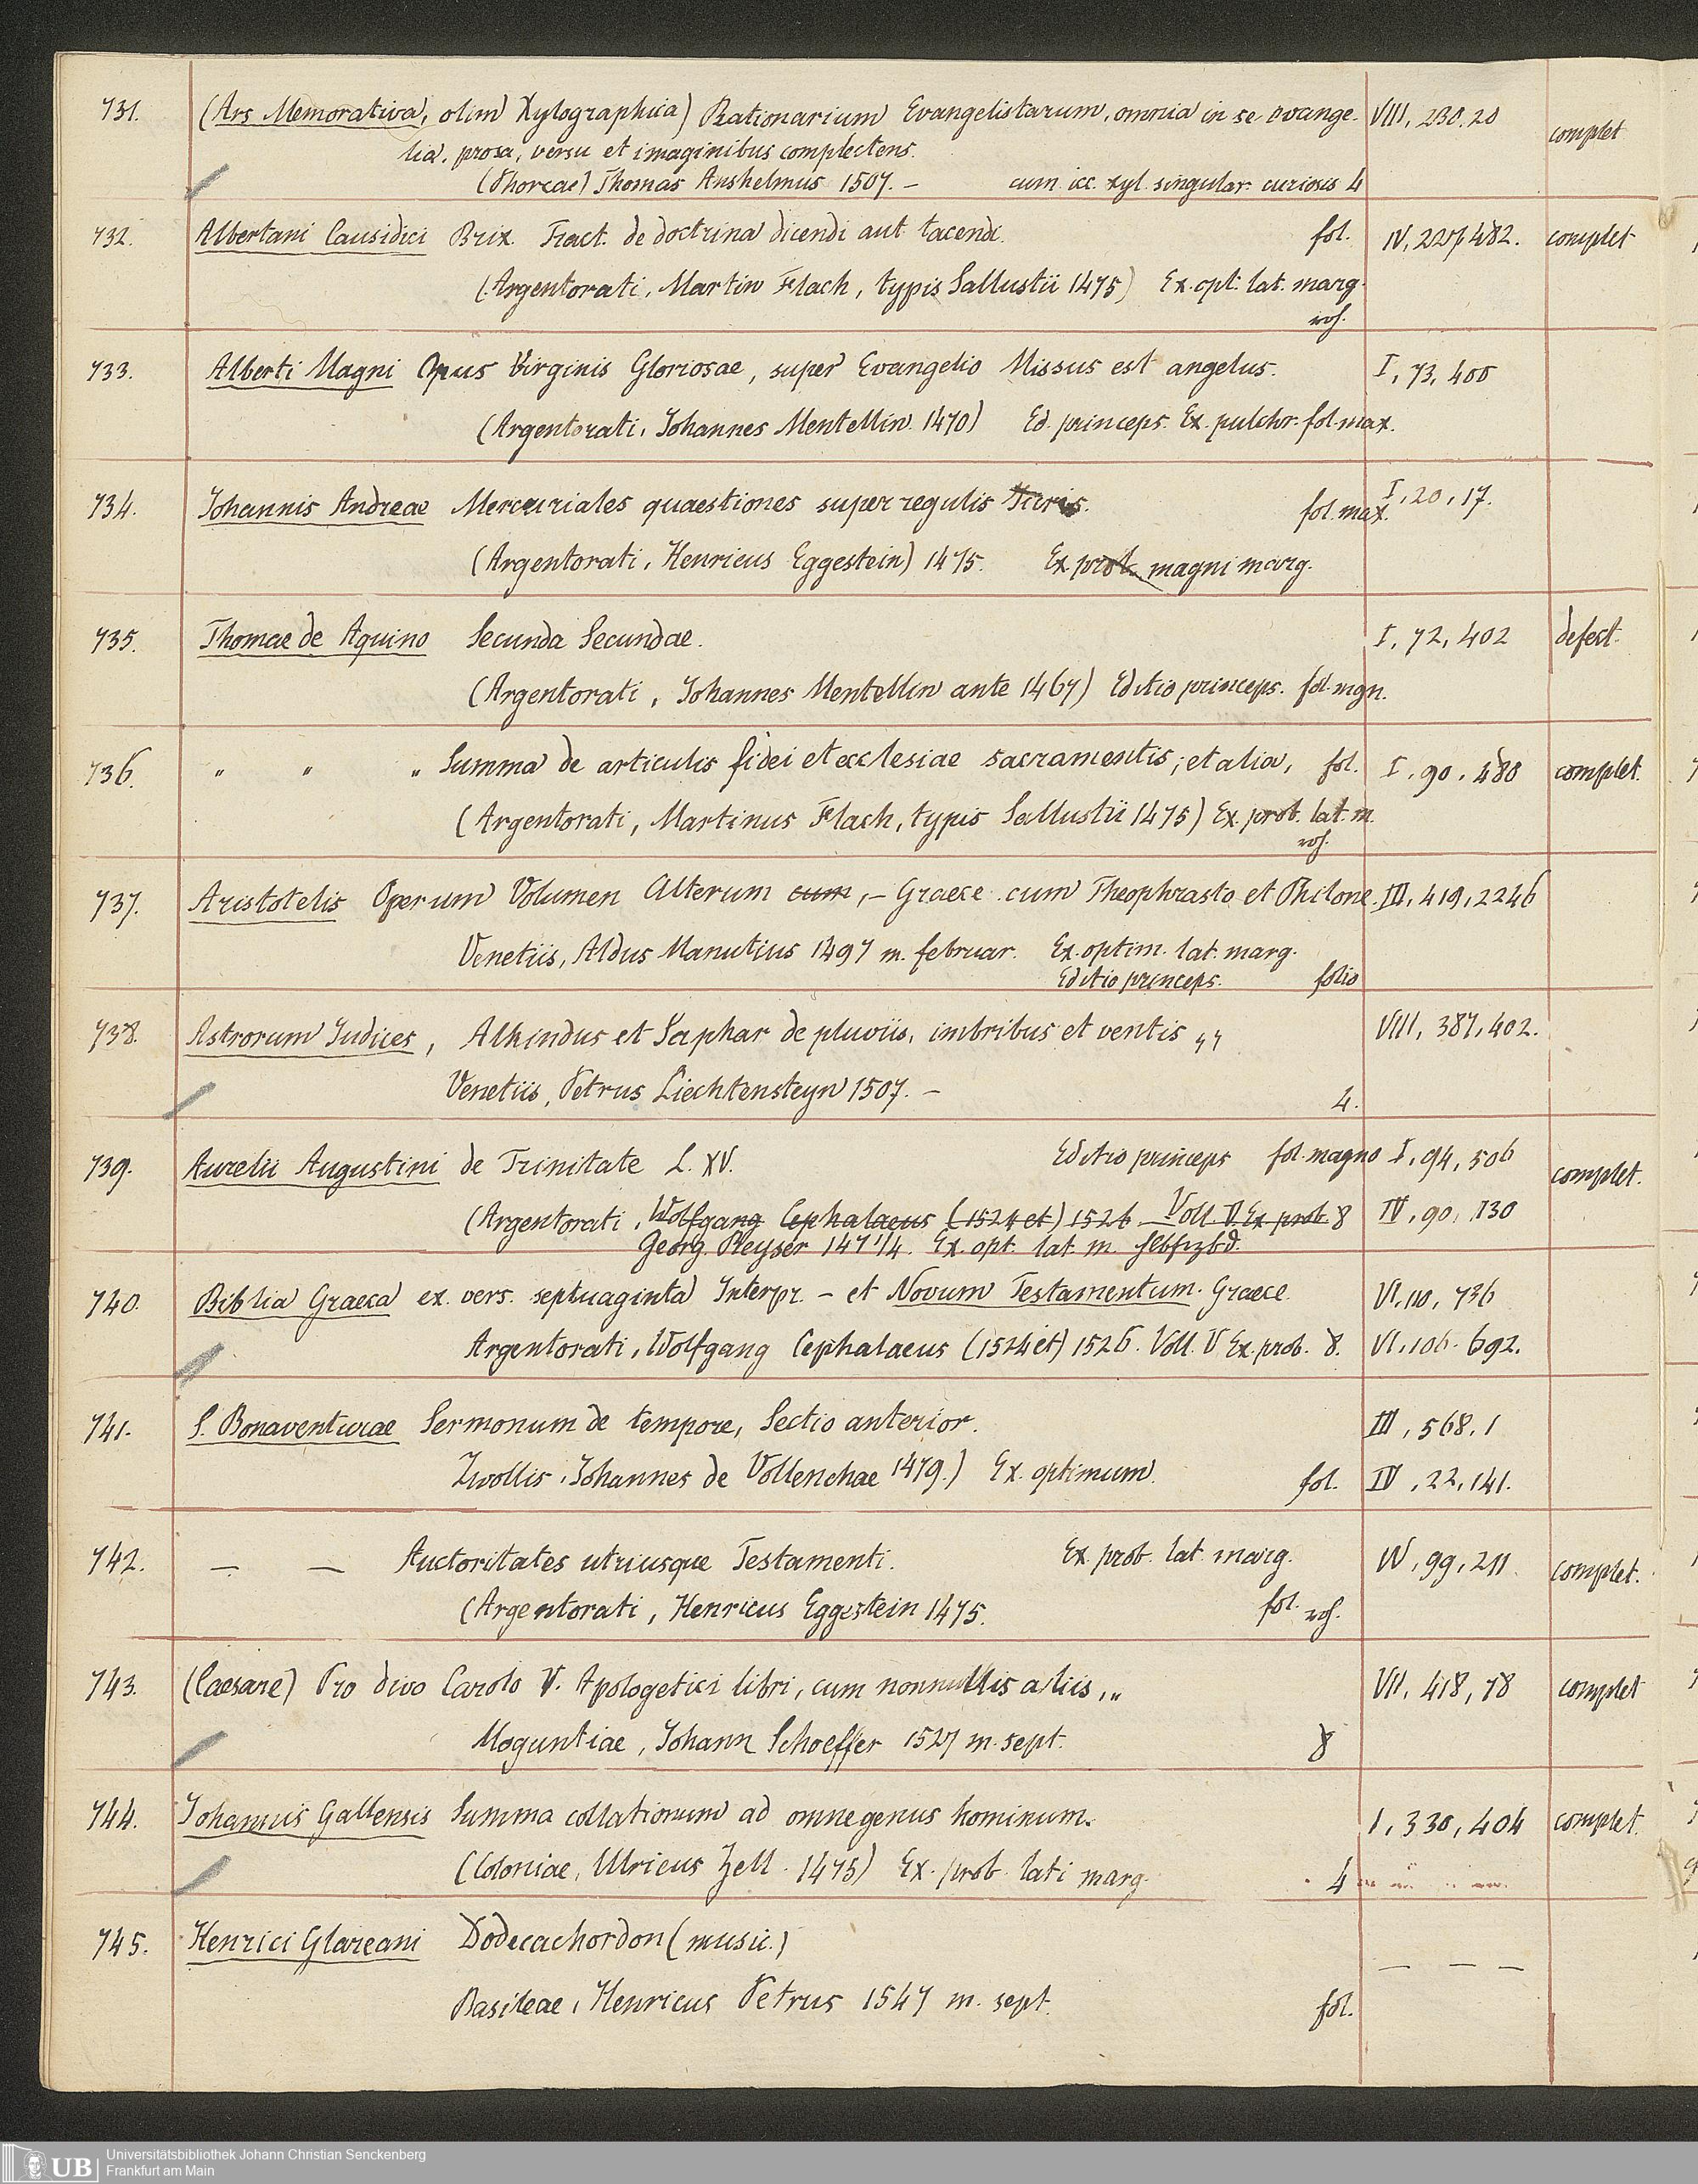 731. (Ars Memorativa, olim Xylographica) Rationarium Evangelistarum, omnia in se evange- VIII, 230, 20 complet
lia, prosa, versu et imaginibus complectens.
(Phorcae) Thomas Anshelmus 1507. – cum icc. xyl. singular. curiosis 4
732. Albertani Causidici Brix. Tract. de doctrina dicendi aut tacendi. fol. IV, 227, 482. complet
(Argentorati, Martin Flach, typis Sallustii 1475) Ex. opt. lat. marg.
roh.
733. Alberti Magni Opus Virginis Gloriosae, super Evangelio Missus est angelus. I, 73, 400
(Argentorati, Johannes Mentellin 1470) Ed. princeps. Ex. pulchr. fol. max.
734. Johannis Andreae Mercuriales quaestiones super regulis Juris. fol. max. I, 20, 17.
(Argentorati, Henricus Eggestein) 1475. Ex prob. magni marg.
735. Thomae de Aquino Secunda Secundae. I, 72, 402 defect.
(Argentorati, Johannes Mentellin ante 1467) Editio princeps. fol. mgn.
736. " " " Summa de articulis fidei et ecclesiae sacramentis; et alia, fol. I, 90, 480 complet.
(Argentorati, Martinus Flach, typis Sallustii 1475) Ex. prob. lat. m.
roh.
737. Aristotelis Operum Volumen Alterum cum, – Graece cum Theophrasto et Philone. III, 419, 2246
Venetiis, Aldus Manutius 1497 m. februar. Ex. optim. lat. marg.
Editio princeps. folio
738. Astrorum Judices, Alkindus et Saphar de pluviis, imbribus et ventis „ VIII, 387, 402.
Venetiis, Petrus Liechtensteyn 1507. – 4.
739. Aurelii Augustini de Trinitate L. XV. Editio princeps fol. magno I, 94, 506 complet.
(Argentorati, Wolfgang Cephalaeus (1524 et) 1526 Voll. V. Ex prob. 8 IV, 90, 130
Georg Reyser 1471/4. Ex. opt. lat. m.
740. Biblia Graeca ex. vers. septuaginta Interpr. – et Novum Testamentum. Graece. VI, 110, 736
Argentorati, Wolfgang Cephalaeus (1524 et) 1526. Voll. V Ex. prob. 8. VI, 106. 692.
741. S. Bonaventurae Sermonum de tempore, Sectio anterior. III, 568, 1
Zwollis, Johannes de Vollenchae 1479.) Ex. optimum. fol. IV, 22, 141.
742. — — Auctoritates utriusque Testamenti. Ex. prob. lat. marg. IV, 99, 211. complet.
(Argentorati, Henricus Eggestein 1475. fol. roh.
743. (Caesare) Pro divo Carolo V. Apologetici libri, cum nonnullis aliis, „ VII, 418, 78 complet
Moguntiae, Johann Schoeffer 1527 m. sept. 8
744. Johannis Gallensis Summa collationum ad omne genus hominum. I, 330, 404 complet.
(Coloniae, Ulricus Zell. 1475) Ex. prob. lati marg. 4
745. Henrici Glareani Dodecachordon (music.) — — —
Basileae, Henricus Petrus 1547 m. sept. fol.
UB Universitätsbibliothek Johann Christian Senckenberg
Frankfurt am Main